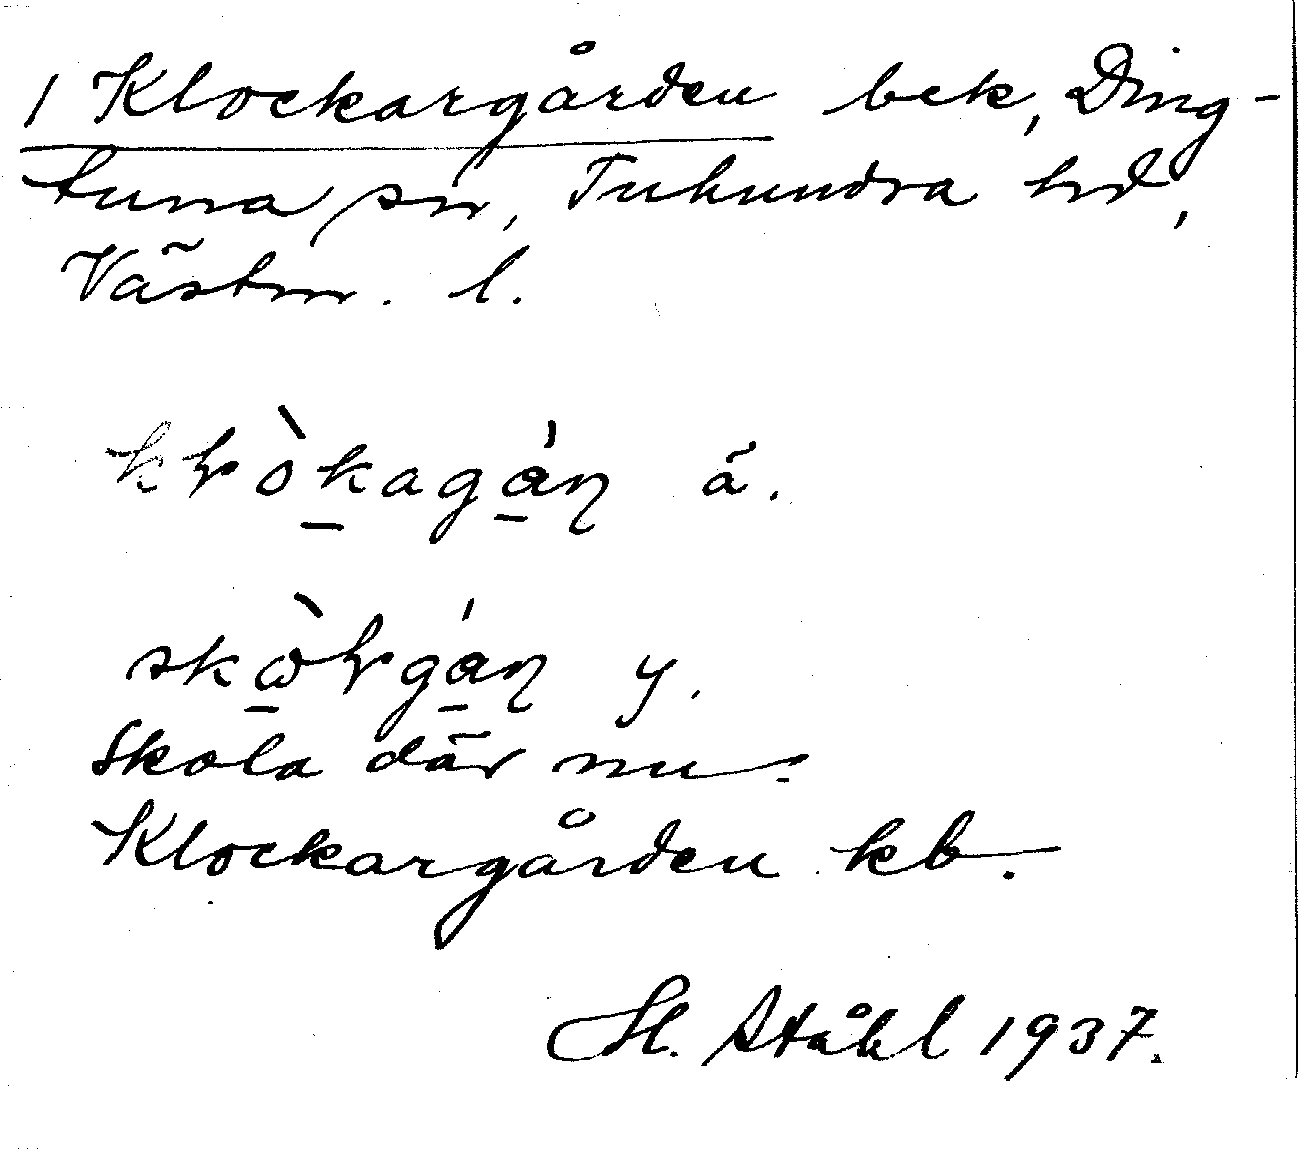 1 Klockargården bek, Ding-
tuna sn, Tuhundra hd,
Västm. l.
kɭòkagán ä.
skòɭgán y.
Skola där nu.
Klockargården kb.
H. Ståhl 1937.